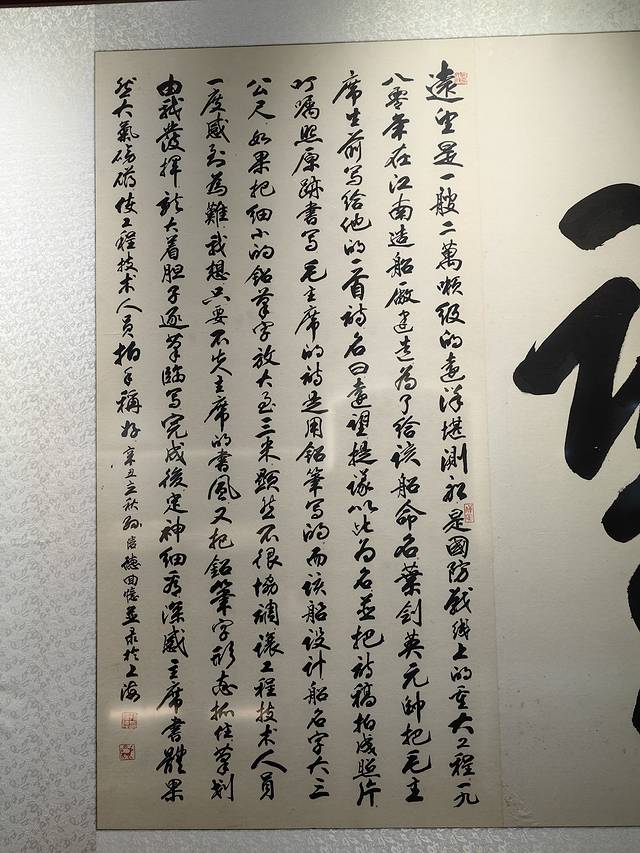 遠望是一艘二萬噸級的遠洋堪測船是國防戰綫上的重大工程一九
八零年在江南造船廠建造為了給該船命名葉劍英元帥把毛主
席生前写給他的一首詩名曰遠望提議以此為名並把詩稿拍成照片
叮囑照原跡書写毛主席的詩是用鉛筆写的而該船設計船名字大三
公尺如果把細小的鉛筆字放大至三米顯然不很協調讓工程技术人員
一度感到為難我想只要不失主席的書風又把鉛筆字形态抓住筆划
由我發揮就大着胆子逐筆臨写完成後定神細看深感主席書體果
然大氣磅礴使工程技术人員拍手稱好辛丑立秋德回憶並录於上海